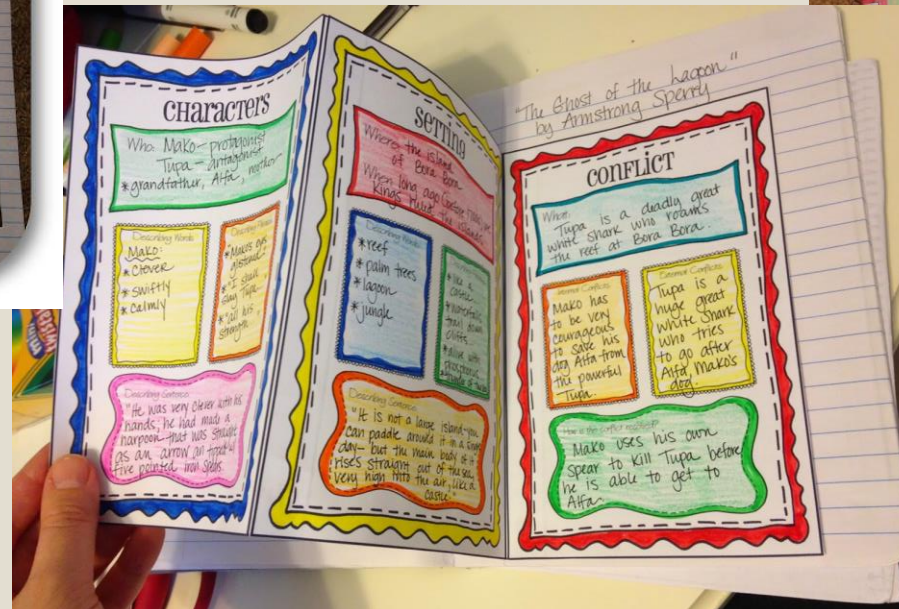 "The Ghost of the Lagoon"
by Armstrong Sperry
CHARACTERS
Who: Mako - protagonist
Tupa - antagonist
*grandfather, Alfa, mother
Describing Words
Mako:
*Clever
*swiftly
*calmly
Describing Phrases
*Mako's eyes
glistened
*"I shall
slay Tupa"
*"all his
strength"
Describing Sentence
"He was very clever with his
hands; he had made a
harpoon that was straight
as an arrow and tipped w/
five pointed iron spears.
SETTING
Where: the island
of Bora Bora
When: long ago before
Kings ruled the islands
Describing Words
*reef
*palm trees
*lagoon
*jungle
Describing Phrases
*like a
castle
*waterfalls
trail down
cliffs
*alive with
Describing Sentence
"It is not a large island - you
can paddle around it in a single
day - but the main body of it
rises straight out of the sea,
very high into the air, like a
castle."
CONFLICT
What:
Tupa is a deadly great
white shark who roams
the reef at Bora Bora.
Internal Conflicts
Mako has
to be very
courageous
to save his
dog Alfa from
the powerful
Tupa.
External Conflicts
Tupa is a
huge great
white shark
who tries
to go after
Alfa, Mako's
dog.
How is the conflict resolved?
Mako uses his own
spear to kill Tupa before
he is able to get to
Alfa.